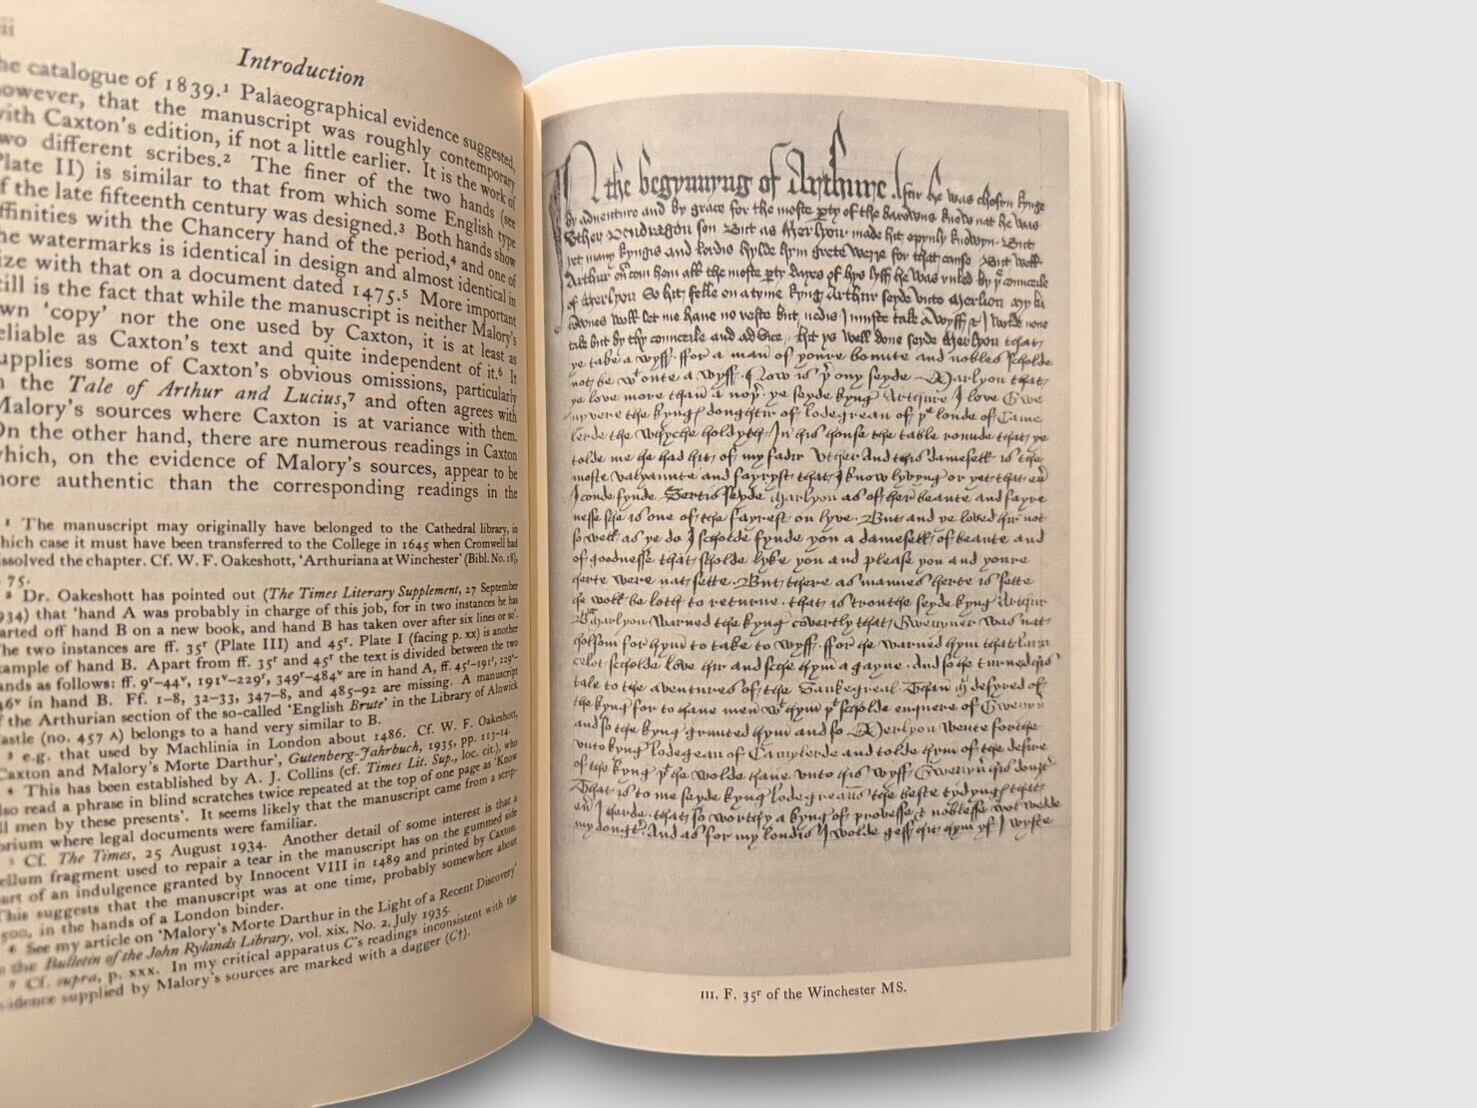 Introduction
the catalogue of 1839.¹ Palaeographical evidence suggested,
however, that the manuscript was roughly contemporary
with Caxton's edition, if not a little earlier. It is the work of
two different scribes.² The finer of the two hands (see
Plate II) is similar to that from which some English type
of the late fifteenth century was designed.³ Both hands show
affinities with the Chancery hand of the period,⁴ and one of
the watermarks is identical in design and almost identical in
size with that on a document dated 1475.⁵ More important
still is the fact that while the manuscript is neither Malory's
own 'copy' nor the one used by Caxton, it is at least as
reliable as Caxton's text and quite independent of it.⁶ It
supplies some of Caxton's obvious omissions, particularly
in the Tale of Arthur and Lucius,⁷ and often agrees with
Malory's sources where Caxton is at variance with them.
On the other hand, there are numerous readings in Caxton
which, on the evidence of Malory's sources, appear to be
more authentic than the corresponding readings in the
¹ The manuscript may originally have belonged to the Cathedral library, in
which case it must have been transferred to the College in 1645 when Cromwell had
dissolved the chapter. Cf. W. F. Oakeshott, 'Arthuriana at Winchester' (Bibl. No. 18),
75.
² Dr. Oakeshott has pointed out (The Times Literary Supplement, 27 September
1934) that 'hand A was probably in charge of this job, for in two instances he has
started off hand B on a new book, and hand B has taken over after six lines or so'.
The two instances are ff. 35ʳ (Plate III) and 45ʳ. Plate I (facing p. xx) is another
example of hand B. Apart from ff. 35ʳ and 45ʳ the text is divided between the two
hands as follows: ff. 9ʳ–44ᵛ, 191ᵛ–229ʳ, 349ʳ–484ᵛ are in hand A, ff. 45ʳ–191ʳ, 229ʳ–
46ᵛ in hand B. Ff. 1–8, 32–33, 347–8, and 485–92 are missing. A manuscript
of the Arthurian section of the so-called 'English Brute' in the Library of Alnwick
Castle (no. 457 A) belongs to a hand very similar to B.
³ e.g. that used by Machlinia in London about 1486. Cf. W. F. Oakeshott,
'Caxton and Malory's Morte Darthur', Gutenberg-Jahrbuch, 1935, pp. 113–14.
⁴ This has been established by A. J. Collins (cf. Times Lit. Sup., loc. cit.), who
also read a phrase in blind scratches twice repeated at the top of one page as 'Know
all men by these presents'. It seems likely that the manuscript came from a scrip-
torium where legal documents were familiar.
⁵ Cf. The Times, 25 August 1934. Another detail of some interest is that a
vellum fragment used to repair a tear in the manuscript has on the gummed side
part of an indulgence granted by Innocent VIII in 1489 and printed by Caxton.
This suggests that the manuscript was at one time, probably somewhere about
1500, in the hands of a London binder.
⁶ See my article on 'Malory's Morte Darthur in the Light of a Recent Discovery'
in the Bulletin of the John Rylands Library, vol. xix, No. 2, July 1935.
⁷ Cf. supra, p. xxx. In my critical apparatus C's readings inconsistent with the
evidence supplied by Malory's sources are marked with a dagger (C†).
In the begynnyng of Arthure Aftir he was chosyn kynge
by adventure and by grace for the moste pty of the barowns knew nat he was
Uther Pendragon son But as Merlyon made hit opynly knowyn But
yet many kyngis and lordis hylde hym grete werre for that cause But well
Arthur ou᷑com hem all the moste pty dayes of hys lyff he was ruled by yᵉ counceile
of Merlyon So hit felle on a tyme kyng Arthur seyde unto Merlion My ba
rownes woll let me have no reste but nedis I muste take a wyff & I wolde none
take but by thy counceile and advice hit ys well done seyde Merlyon that
ye take a wyff ffor a man of youre bounte and nobles scholde
not be wᵗ oute a wyff Now is þʳ ony seyde Marlyon that
ye love more than a noþʳ ye seyde kyng Arthure I love Gwe
nyvere the kyng doughtir of lodegrean of þᵉ londe of Came
lerde the whyche holdyth in his house the table rounde that ye
tolde me he had hit of my fadir Uther And this damesell is the
moste valyaunte and fayryst that I know lyvyng or yet that eu᷑
I coude fynde Sertis seyde Marlyon as of her beaute and fayre
nesse she is one of the fayrest on lyve But and ye loved hir not
so well as ye do I scholde fynde you a damesell of beaute and
of goodnesse that sholde lyke you and please you and youre
herte were nat sette But there as mannes herte is sette
he woll be loth to returne that is trouthe seyde kyng Arthur
But Marlyon warned the kyng covertly that Gwenyver was nat
holsom for hym to take to wyff ffor he warned hym that Laun
celot scholde love hir and sche hym agayne And so he turned his
tale to the aventures of the Sankegreal Than he desyred of
the kyng for to have men wᵗ hym þᵗ scholde enquere of Gwenyv
and so the kyng graunted hym and so Merlyon wente forthe
unto kyng Lodegean of Camylerde and tolde hym of the desire
of the kyng þᵗ he wolde have unto his wyff Gwenyv᷑ his douʒtᵉʳ
That is to me seyde kyng lodegreans the beste tydyngs that
eu᷑ I herde that so worthy a kyng of prouesse & noblesse wol wedde
my dougtᵉʳ And as for my londis I wolde geff hit hym yf I wyste
III. F. 35ʳ of the Winchester MS.